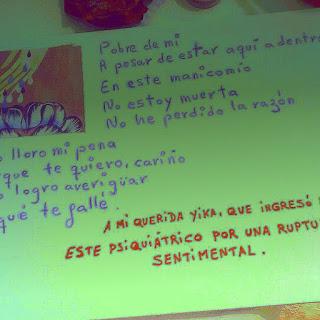 Pobre de mi
A pesar de estar aquí adentro
En este manicomio
No estoy muerta
No he perdido la razón
lloro mi pena
que te quiero, cariño
logro averigüar
qué te fallé.
A MI QUERIDA YIKA, QUE INGRESÓ
ESTE PSIQUIÁTRICO POR UNA
SENTIMENTAL.